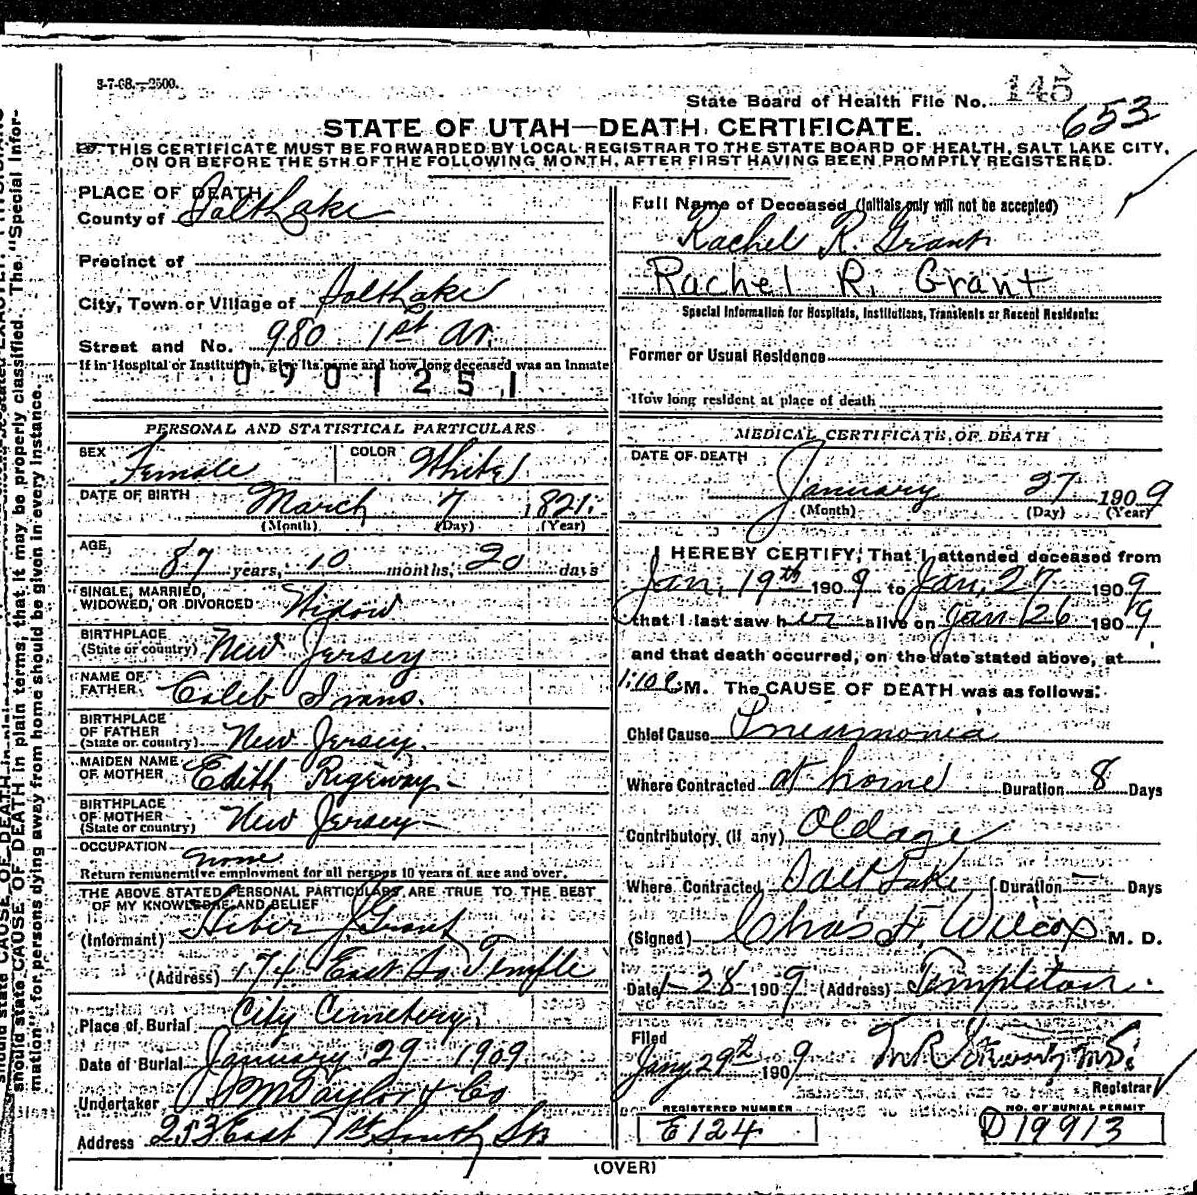 3-7-08.—2500.
State Board of Health File No. 145
653
STATE OF UTAH—DEATH CERTIFICATE.
THIS CERTIFICATE MUST BE FORWARDED BY LOCAL REGISTRAR TO THE STATE BOARD OF HEALTH, SALT LAKE CITY,
ON OR BEFORE THE 5TH OF THE FOLLOWING MONTH, AFTER FIRST HAVING BEEN PROMPTLY REGISTERED.
PLACE OF DEATH
County of Salt Lake
Precinct of
City, Town or Village of Salt Lake
Street and No. 980 1st Av.
If in Hospital or Institution, give its name and how long deceased was an inmate
0901251
PERSONAL AND STATISTICAL PARTICULARS
SEX Female COLOR White
DATE OF BIRTH March 7 1821
(Month) (Day) (Year)
AGE 87 years, 10 months, 20 days
SINGLE, MARRIED,
WIDOWED, OR DIVORCED Widow
BIRTHPLACE
(State or country) New Jersey
NAME OF
FATHER Caleb Ivans.
BIRTHPLACE
OF FATHER
(State or country) New Jersey.
MAIDEN NAME
OF MOTHER Edith Rigeway
BIRTHPLACE
OF MOTHER
(State or country) New Jersey
OCCUPATION none
Return remunerative employment for all persons 10 years of age and over.
THE ABOVE STATED PERSONAL PARTICULARS ARE TRUE TO THE BEST
OF MY KNOWLEDGE AND BELIEF
(Informant) Heber J Grant
(Address) 174 East So Temple
Place of Burial City Cemetery.
Date of Burial January 29 1909
Undertaker S M Taylor & Co
Address 253 East 1st South St
Full Name of Deceased (Initials only will not be accepted)
Rachel R. Grant
Rachel R. Grant
Special Information for Hospitals, Institutions, Transients or Recent Residents:
Former or Usual Residence
How long resident at place of death
MEDICAL CERTIFICATE OF DEATH
DATE OF DEATH
January 27 1909
(Month) (Day) (Year)
I HEREBY CERTIFY, That I attended deceased from
Jan, 19th 1909 to Jan, 27 1909
that I last saw her alive on Jan 26 1909
and that death occurred, on the date stated above, at
1:10 M. The CAUSE OF DEATH was as follows:
Chief Cause Pneumonia
Where Contracted at home Duration 8 Days
Contributory, (if any) Old age
Where Contracted Salt Lake Duration — Days
(Signed) Chas F. Wilcox M. D.
Date 1-28-1909 (Address) Templeton.
Filed
Jany 29th 1909
Registrar
REGISTERED NUMBER
E124
NO. OF BURIAL PERMIT
D19913
(OVER)
should state CAUSE OF DEATH in plain terms, that it may be properly classified. The "Special Infor-
mation" for persons dying away from home should be given in every instance.